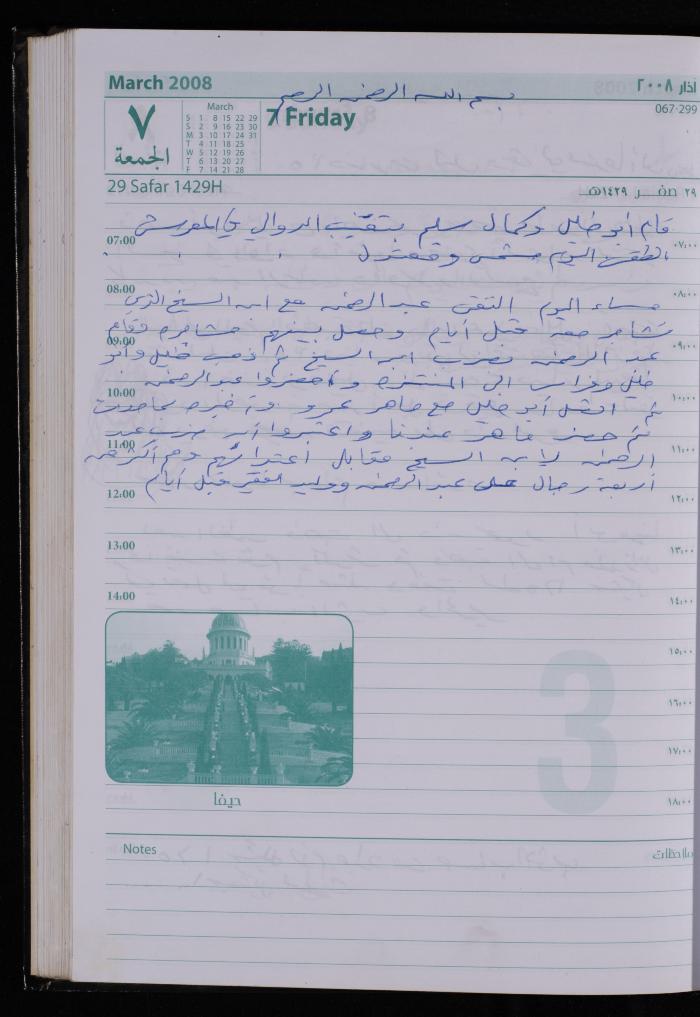 March 2008
اذار ٢٠٠٨
بسم الله الرحمن الرحيم
067-299
٧
الجمعة
March
S 1 8 15 22 29
S 2 9 16 23 30
M 3 10 17 24 31
T 4 11 18 25
W 5 12 19 26
T 6 13 20 27
F 7 14 21 28
7 Friday
29 Safar 1429H
٢٩ صفر ١٤٢٩هـ
قام أبو خليل وكمال سليم بتقنيب الدوالي في المعرش
07:00
٠٧:٠٠
الطقس اليوم مشمس ومعتدل
08:00
٠٨:٠٠
مساء اليوم التقى عبد الرحمن مع ابن الشيخ الذي
تشاجر معه قبل أيام وحصل بينهم مشاجرة فقام
09:00
٠٩:٠٠
عبد الرحمن بضرب ابن الشيخ ثم ذهب خليل وأبو
خليل وفراس الى المنتزه وأحضروا عبد الرحمن
10:00
١٠:٠٠
ثم اتصل أبو خليل مع ماهر عمرو وأخبره بما حدث
ثم حضر ماهر عندنا واعتبروا أن ضرب عبد
11:00
١١:٠٠
الرحمن لابن الشيخ مقابل اعتدائهم وهم أكثر من
أربعة رجال على عبد الرحمن ووليد الفقير قبل أيام
12:00
١٢:٠٠
13:00
١٣:٠٠
14:00
١٤:٠٠
١٥:٠٠
3
١٦:٠٠
١٧:٠٠
حيفا
١٨:٠٠
Notes
ملاحظات